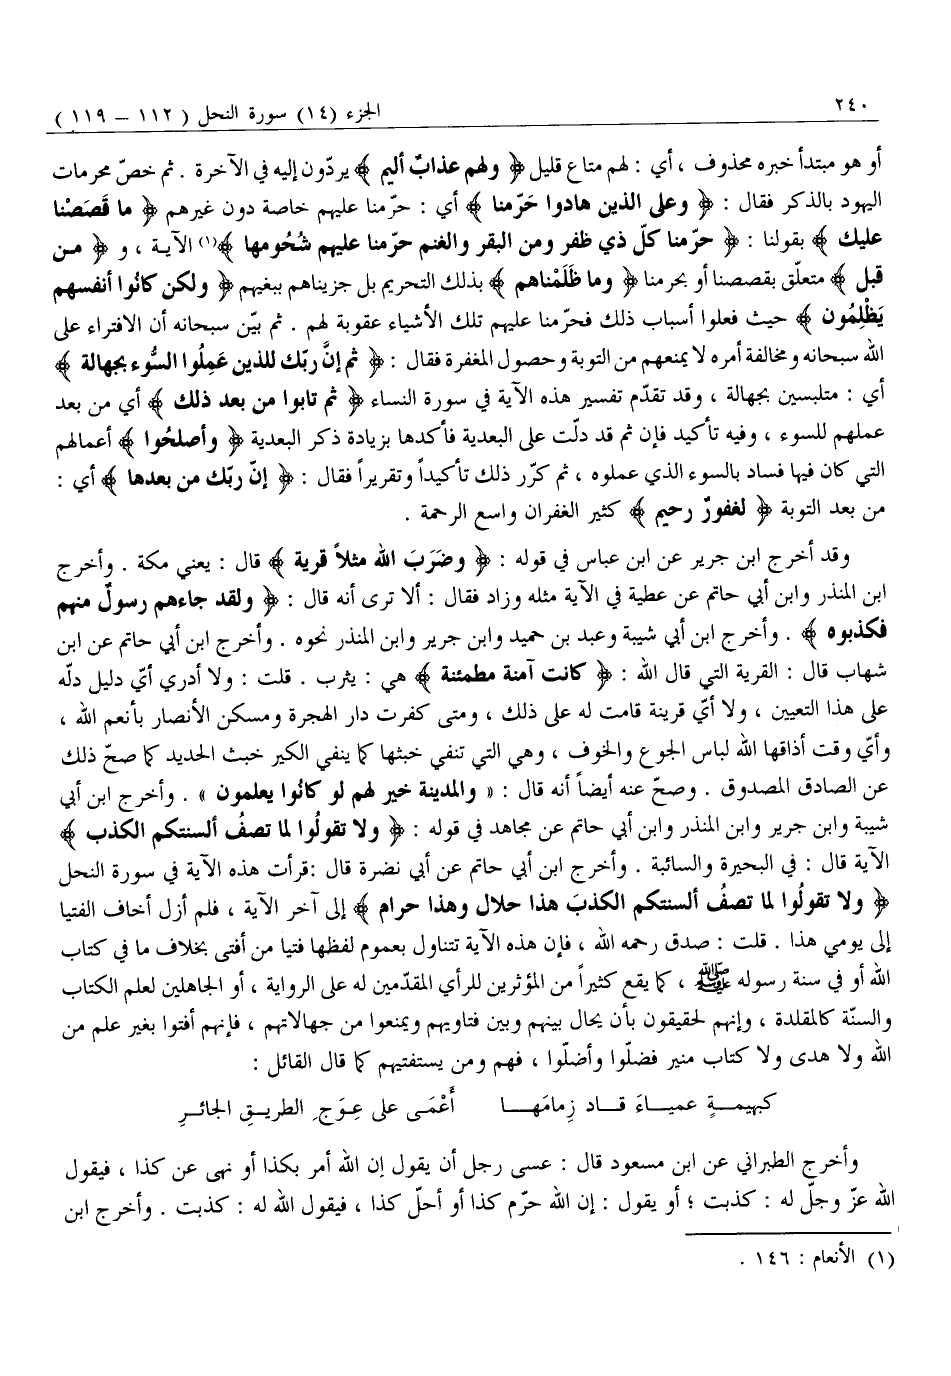 ٢٤٠
الجزء (١٤) سورة النحل ( ١١٢ – ١١٩ )
أو هو مبتدأ خبره محذوف ، أي : لهم متاع قليل ﴿ ولهم عذابٌ أليم ﴾ يردّون إليه في الآخرة . ثم خصّ محرمات
اليهود بالذكر فقال : ﴿ وعلى الذين هادوا حَرّمنا ﴾ أي : حرّمنا عليهم خاصة دون غيرهم ﴿ ما قَصَصْنا
عليك ﴾ بقولنا : ﴿ حرّمنا كلّ ذي ظفر ومن البقر والغنم حرّمنا عليهم شُحُومها ﴾(١) الآية ، و ﴿ مـن
قبل ﴾ متعلّق بقصصنا أو بحرمنا ﴿ وما ظَلَمْناهم ﴾ بذلك التحريم بل جزيناهم ببغيهم ﴿ ولكن كانُوا أنفسهم
يَظْلِمُون ﴾ حيث فعلوا أسباب ذلك فحرّمنا عليهم تلك الأشياء عقوبة لهم . ثم بيّن سبحانه أن الافتراء على
الله سبحانه ومخالفة أمره لا يمنعهم من التوبة وحصول المغفرة فقال : ﴿ ثم إنَّ ربّك للذين عَمِلُوا السُّوء بجهالة ﴾
أي : متلبسين بجهالة ، وقد تقدّم تفسير هذه الآية في سورة النساء ﴿ ثم تابوا من بعد ذلك ﴾ أي من بعد
عملهم للسوء ، وفيه تأكيد فإن ثم قد دلّت على البعدية فأكدها بزيادة ذكر البعدية ﴿ وأصلحُوا ﴾ أعمالهم
التي كان فيها فساد بالسوء الذي عملوه ، ثم كرّر ذلك تأكيداً وتقريراً فقال : ﴿ إنّ ربّك من بعدها ﴾ أي :
من بعد التوبة ﴿ لغفورٌ رحيم ﴾ كثير الغفران واسع الرحمة .
وقد أخرج ابن جرير عن ابن عباس في قوله : ﴿ وضَرَبَ الله مثلاً قرية ﴾ قال : يعني مكة . وأخرج
ابن المنذر وابن أبي حاتم عن عطية في الآية مثله وزاد فقال : ألا ترى أنه قال : ﴿ ولقد جاءهم رسولٌ منهم
فكذبوه ﴾ . وأخرج ابن أبي شيبة وعبد بن حميد وابن جرير وابن المنذر نحوه . وأخرج ابن أبي حاتم عن ابن
شهاب قال : القرية التي قال الله : ﴿ كانت آمنة مطمئنة ﴾ هي : يثرب . قلت : ولا أدري أيّ دليل دلّه
على هذا التعيين ، ولا أيّ قرينة قامت له على ذلك ، ومتى كفرت دار الهجرة ومسكن الأنصار بأنعم الله ،
وأيّ وقت أذاقها الله لباس الجوع والخوف ، وهي التي تنفي خبثها كما ينفي الكير خبث الحديد كما صحّ ذلك
عن الصادق المصدوق . وصحّ عنه أيضاً أنه قال : « والمدينة خير لهم لو كانُوا يعلمون » . وأخرج ابن أبي
شيبة وابن جرير وابن المنذر وابن أبي حاتم عن مجاهد في قوله : ﴿ ولا تقولُوا لما تصفُ ألسنتكم الكذب ﴾
الآية قال : في البحيرة والسائبة . وأخرج ابن أبي حاتم عن أبي نضرة قال :قرأت هذه الآية في سورة النحل
﴿ ولا تقولُوا لما تصفُ ألسنتكم الكذبَ هذا حلال وهذا حرام ﴾ إلى آخر الآية ، فلم أزل أخاف الفتيا
إلى يومي هذا . قلت : صدق رحمه الله ، فإن هذه الآية تتناول بعموم لفظها فتيا من أفتى بخلاف ما في كتاب
الله أو في سنة رسوله ﷺ ، كما يقع كثيراً من المؤثرين للرأي المقدّمين له على الرواية ، أو الجاهلين لعلم الكتاب
والسنّة كالمقلدة ، وإنهم لحقيقون بأن يحال بينهم وبين فتاويهم ويمنعوا من جهالاتهم ، فإنهم أفتوا بغير علم من
الله ولا هدى ولا كتاب منير فضلّوا وأضلّوا ، فهم ومن يستفتيهم كما قال القائل :
كبهيمـــةٍ عميـــاءَ قـــاد زِمامَهـــا أَعْمَـى على عِوَجِ الطريـقِ الجائـرِ
وأخرج الطبراني عن ابن مسعود قال : عسى رجل أن يقول إن الله أمر بكذا أو نهى عن كذا ، فيقول
الله عزّ وجلّ له : كذبت ؛ أو يقول : إن الله حرّم كذا أو أحلّ كذا ، فيقول الله له : كذبت . وأخرج ابن
(١) الأنعام : ١٤٦ .